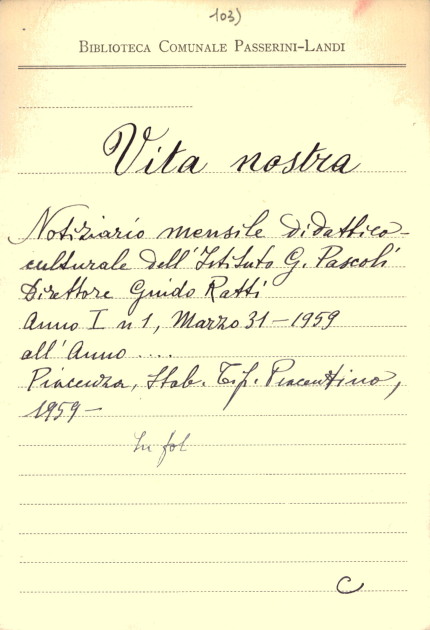 103)
BIBLIOTECA COMUNALE PASSERINI-LANDI
Vita nostra
Notiziario mensile didattico-
culturale dell'Istituto G. Pascoli
Direttore Guido Ratti
Anno I n 1, Marzo 31-1959
all'Anno ....
Piacenza, Stab. Tip. Piacentino,
1959-
In fol
C